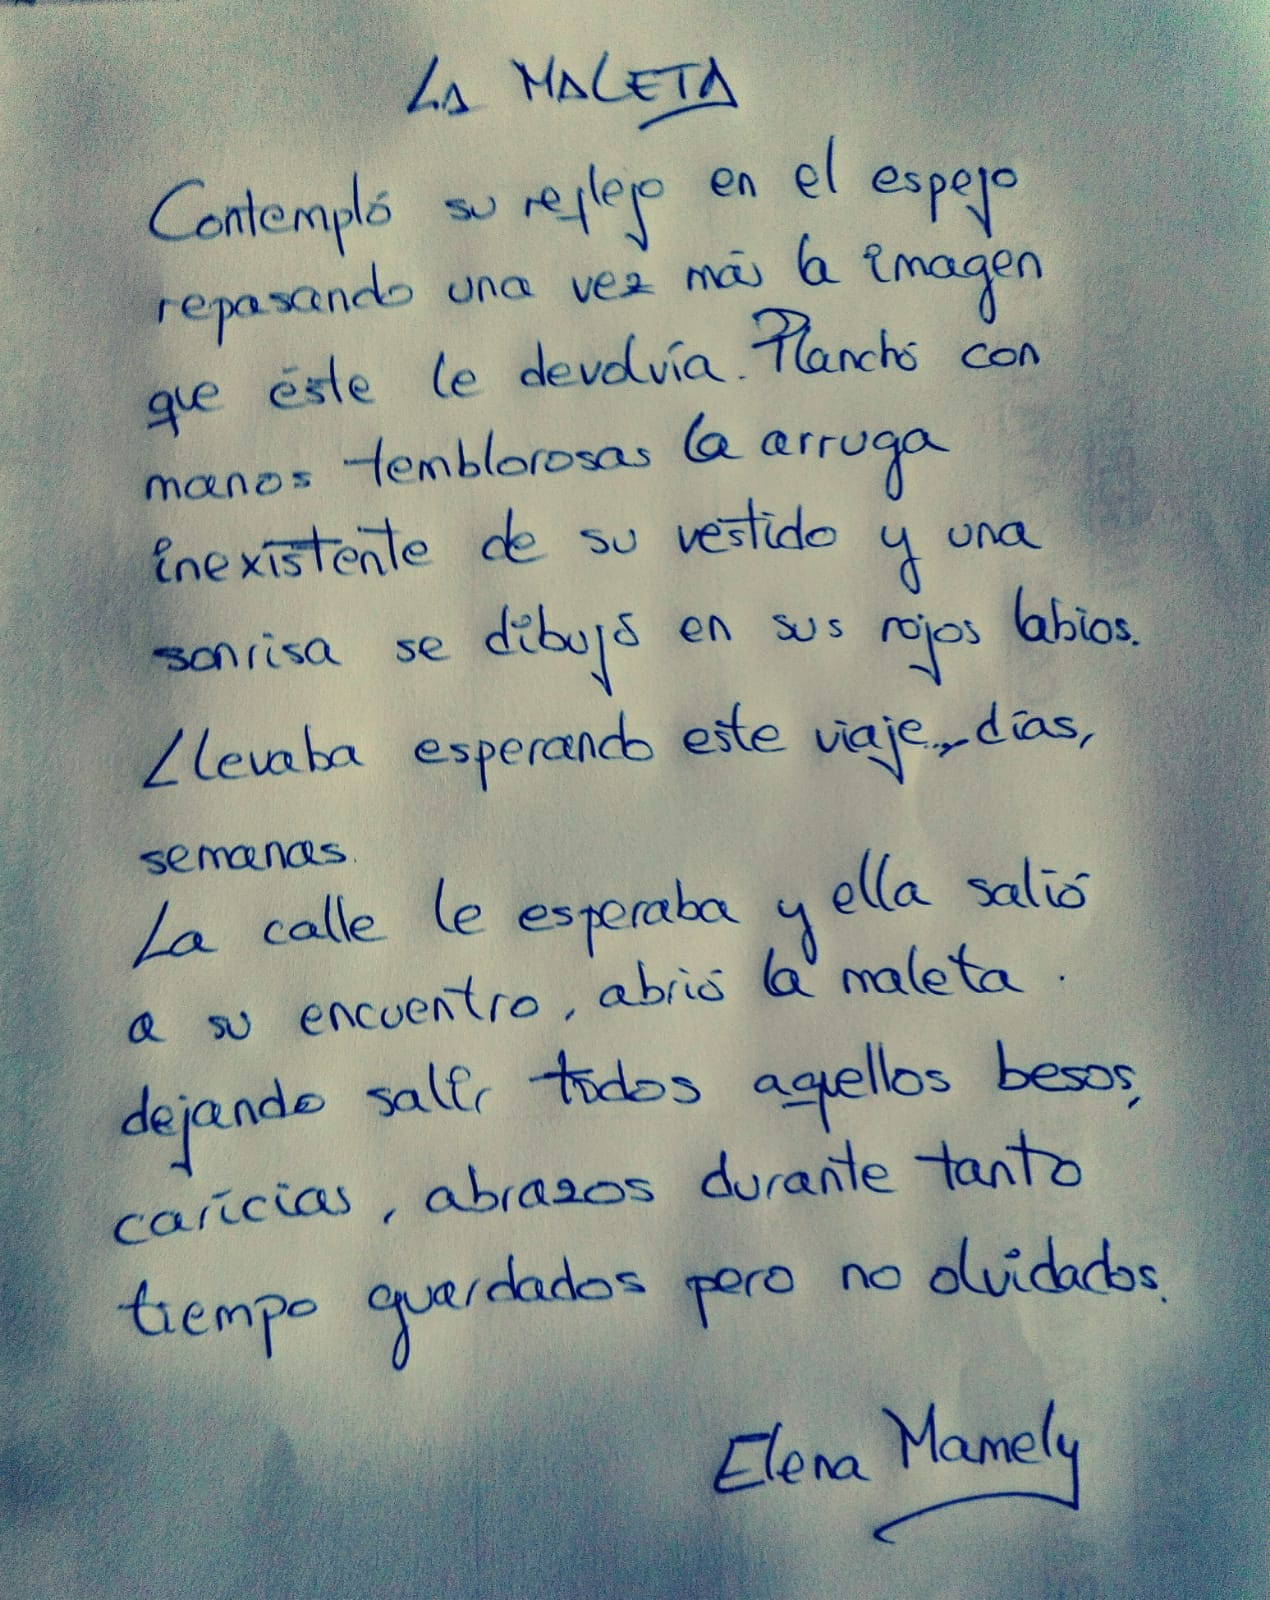 LA MALETA
Contempló su reflejo en el espejo
repasando una vez más la imagen
que éste le devolvía. Planchó con
manos temblorosas la arruga
inexistente de su vestido y una
sonrisa se dibujó en sus rojos labios.
Llevaba esperando este viaje... días,
semanas.
La calle le esperaba y ella salió
a su encuentro, abrió la maleta
dejando salir todos aquellos besos,
caricias, abrazos durante tanto
tiempo guardados pero no olvidados.
Elena Mamely